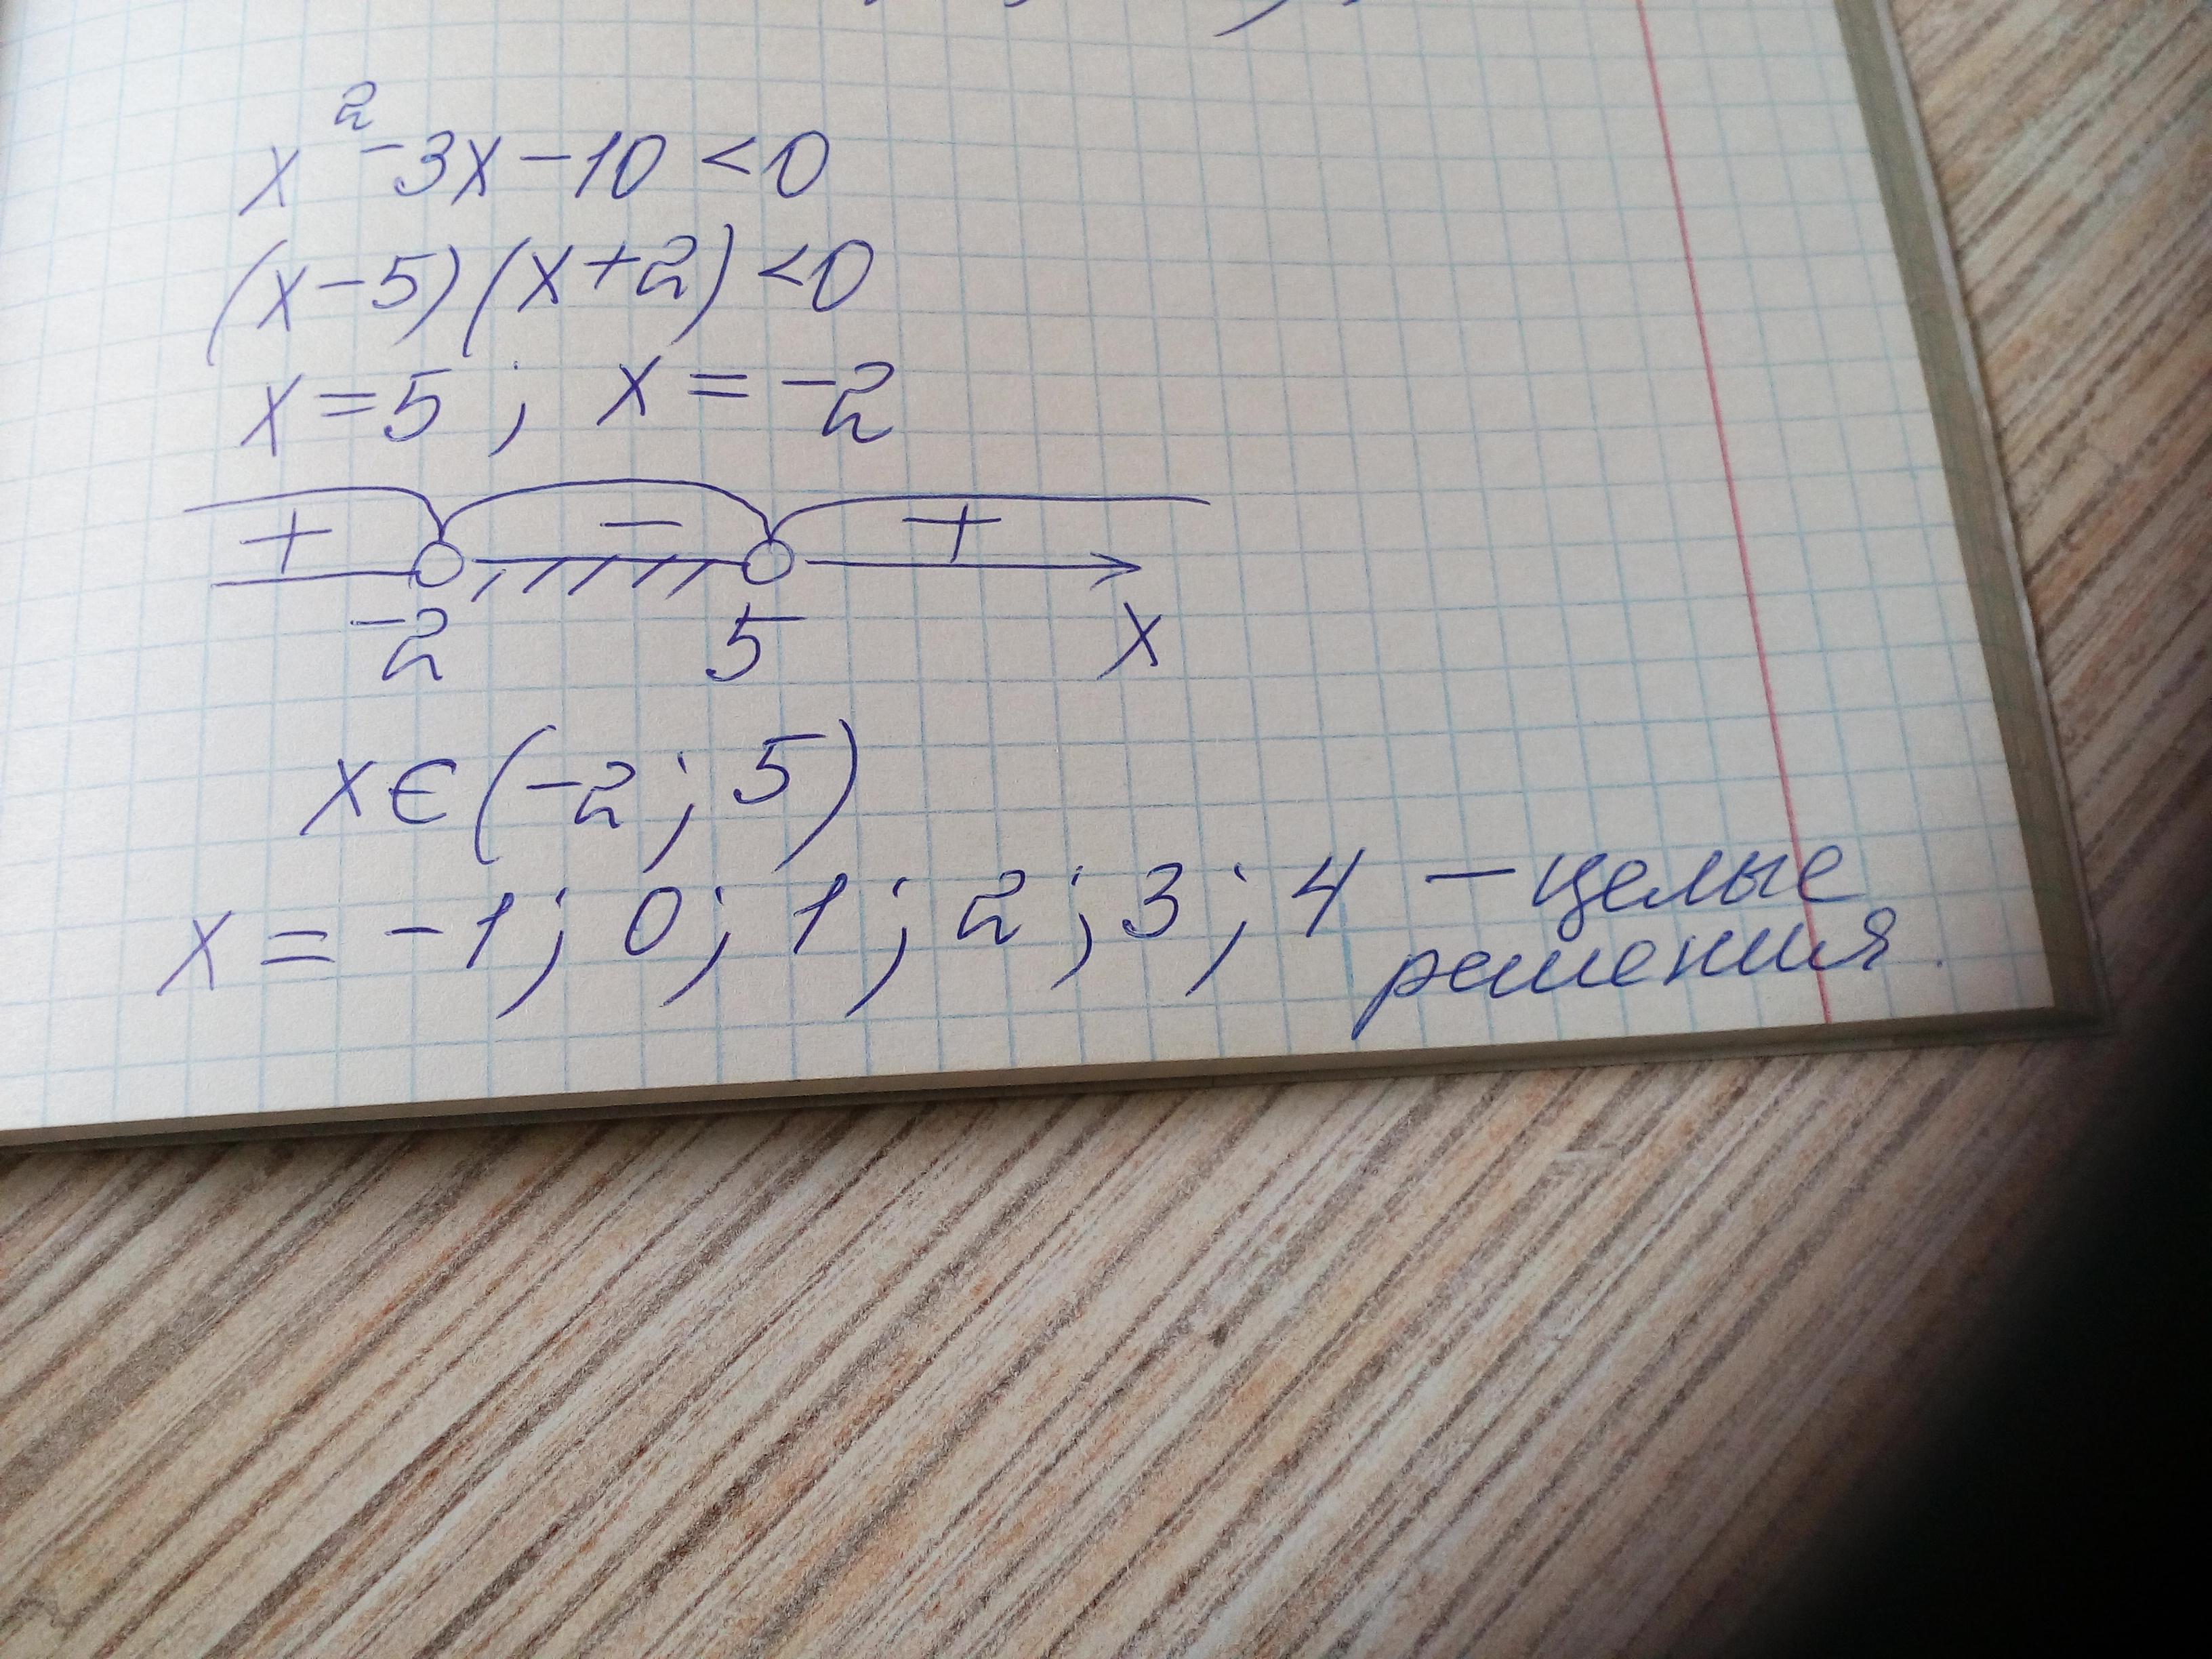 x² - 3x - 10 < 0
(x - 5)(x + 2) < 0
x = 5 ; x = -2
+ - +
-2 5 x
x ∈ (-2 ; 5)
x = -1 ; 0 ; 1 ; 2 ; 3 ; 4 — целые
решения.